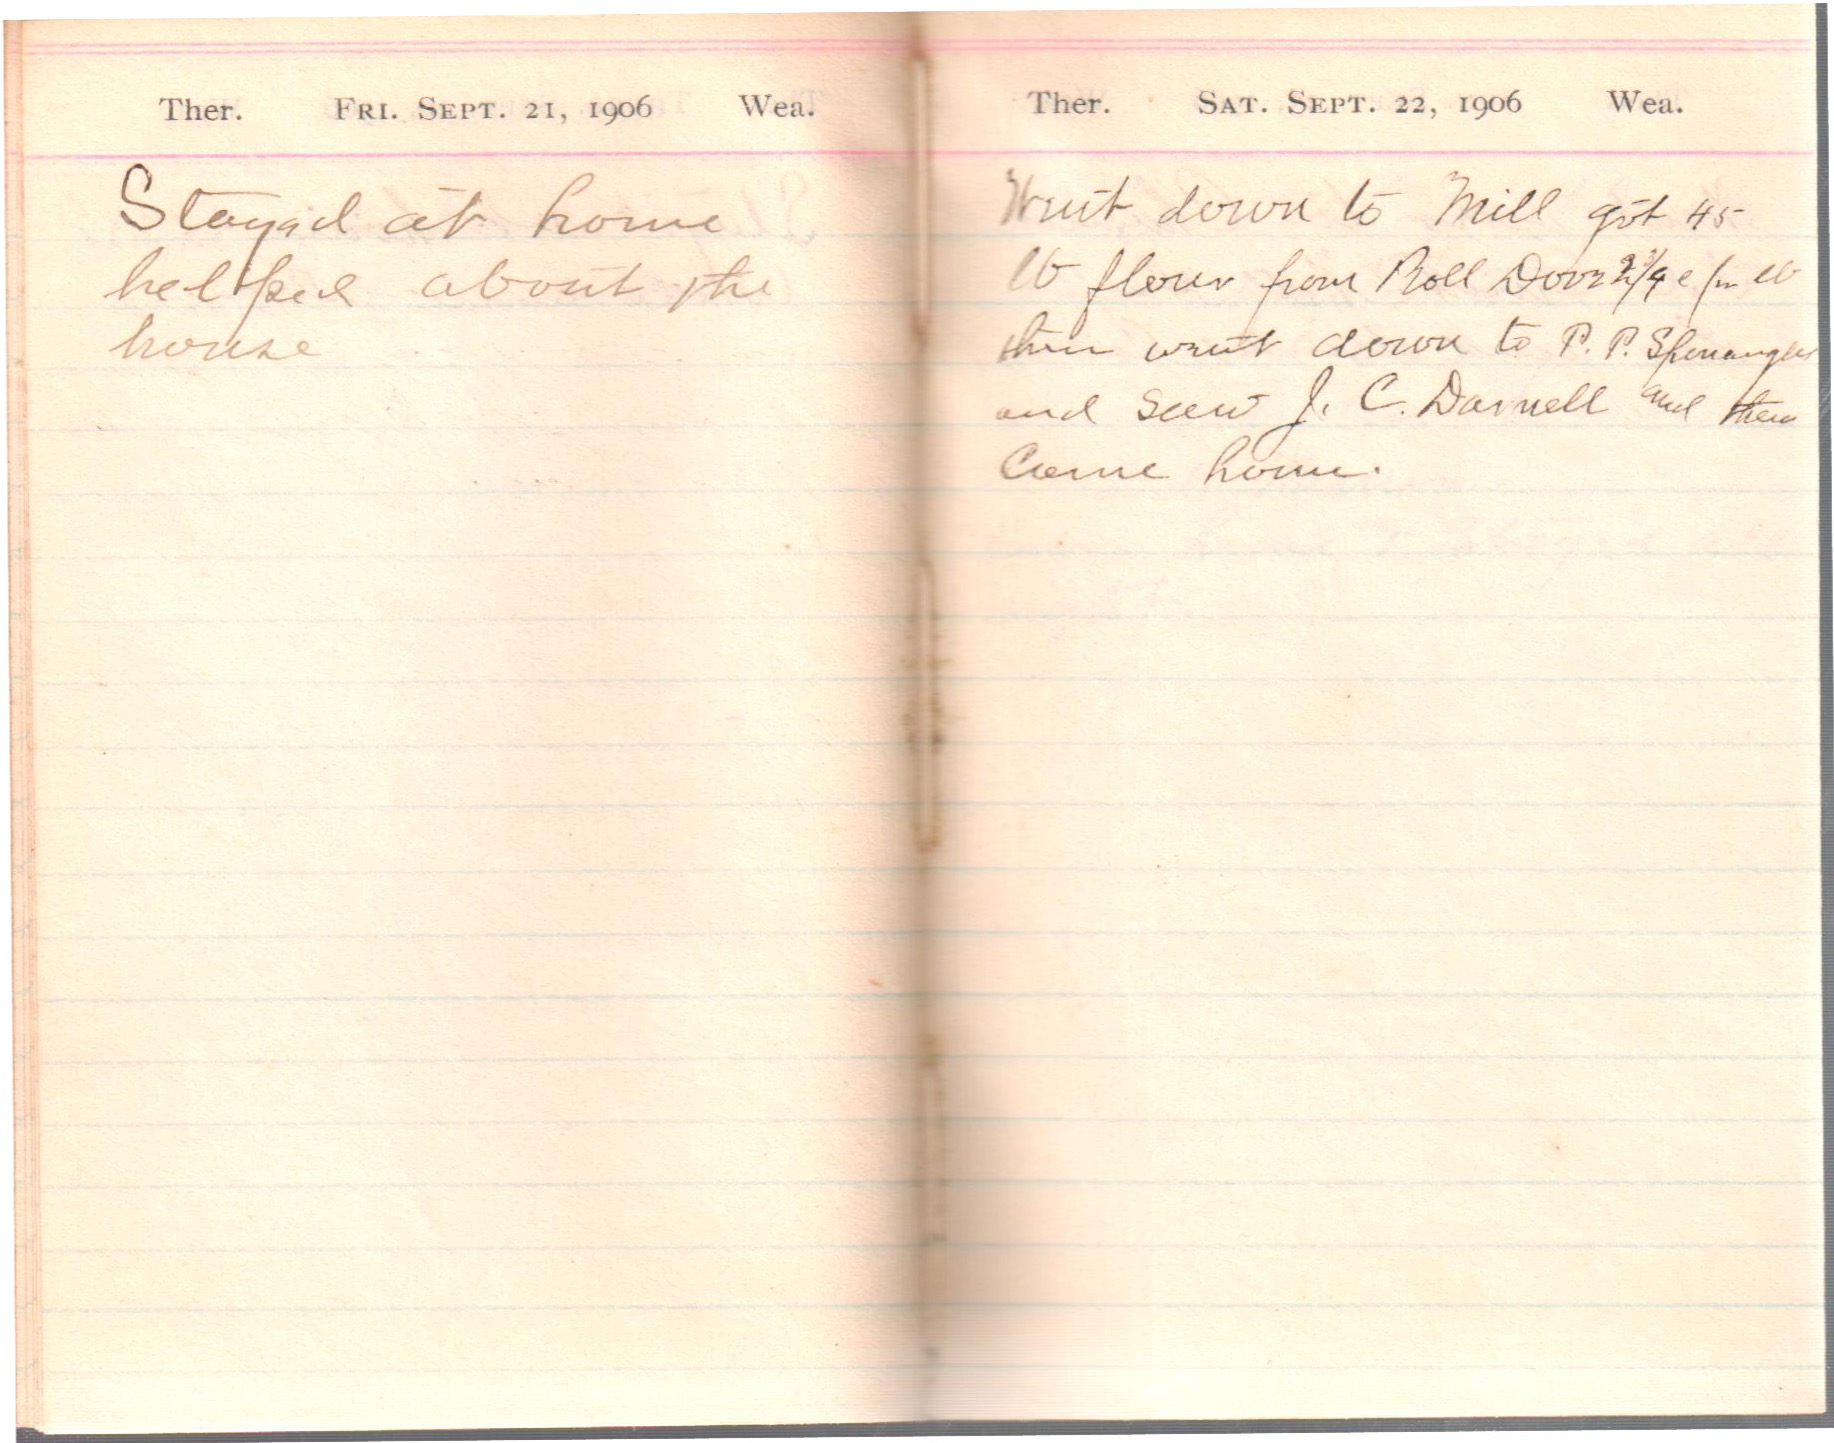 Ther. Fri. Sept. 21, 1906 Wea.
Stayed at home
helped about the
house
Ther. Sat. Sept. 22, 1906 Wea.
Went down to Mill got 45
lb flour from Roll
then went down to P. P.
and seen J. C. Darnell and then
Came home.